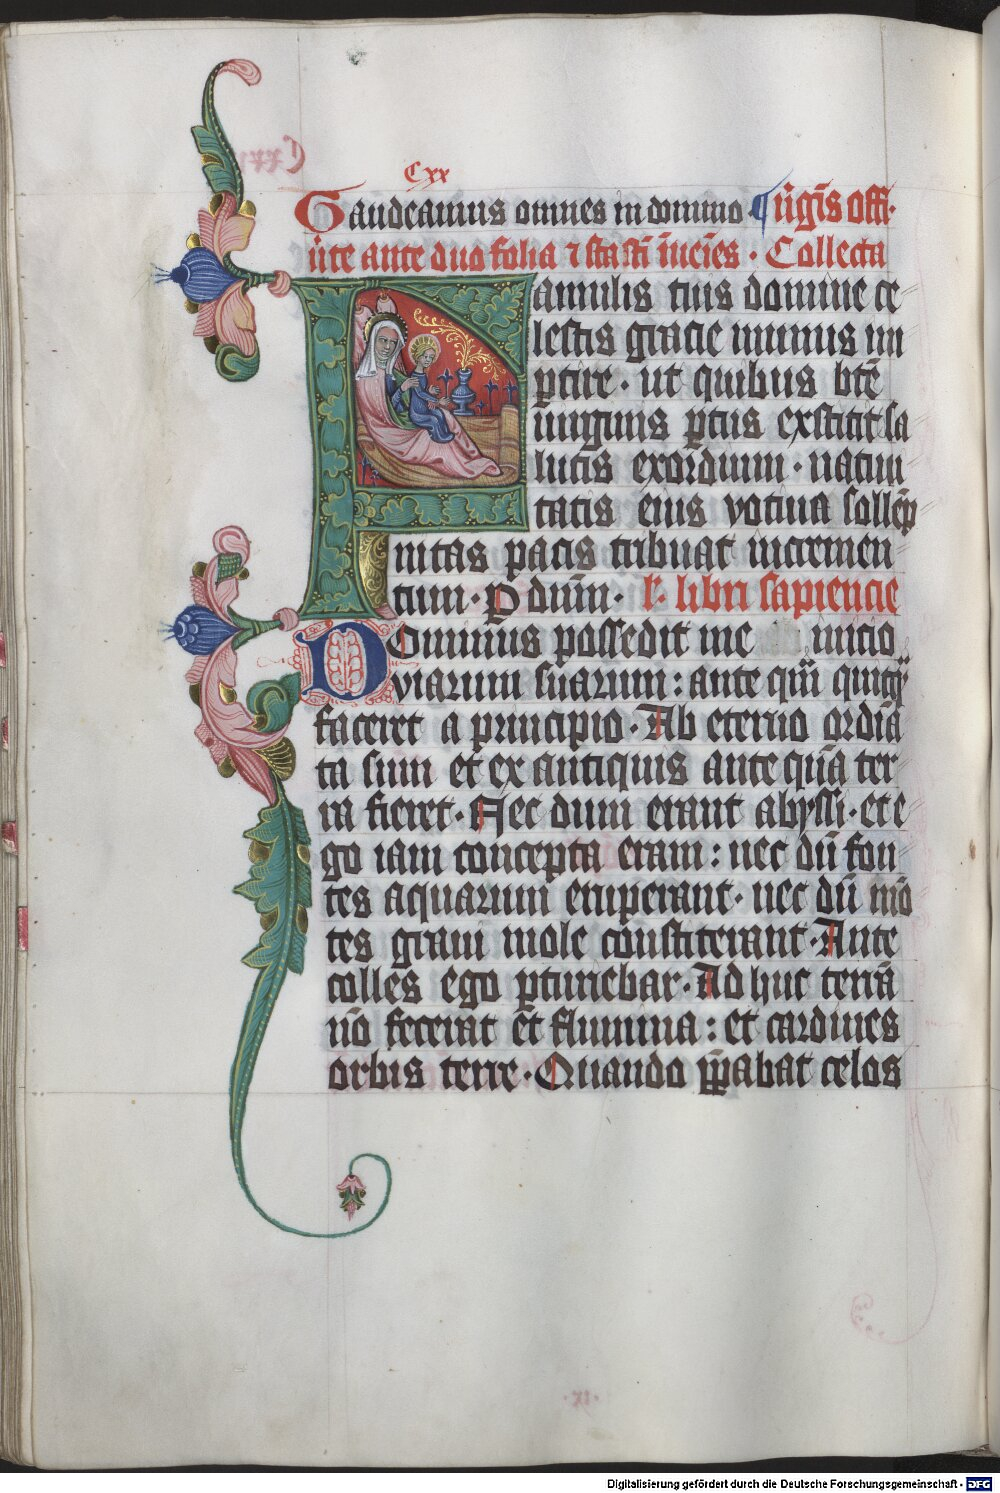 Cxx
Gaudeamus omnes in domino
ante duo folia Collecta
Famulis tuis domine ce
lestis gracie munus im
ꝑtire · ut quibus btē
uirginis ꝑtus exstitit sa
lutis exordium · natiui
tatis eius votiua sollēp
nitas pacis tribuat incremen
tum · P dum̄ · l libri sapiencie
Dominus possedit me inicio
viarum suarum : ante qͣ quicq
faceret a principio · Ab eterno ordīa
ta sum et ex antiquis ante qūa ter
ra fieret · Nec dum erant abyssi · et e
go iam concepta eram : nec dū fon
tes aquarum eruperant · nec dū mō
tes graui mole constiterant · Ante
colles ego ꝑturiebar · Ad huc terrā
nō fecerat et̄ flumina : et cardines
orbis terre · Quando p̄ꝑabat celos
·xi·
Digitalisierung gefördert durch die Deutsche Forschungsgemeinschaft - DFG